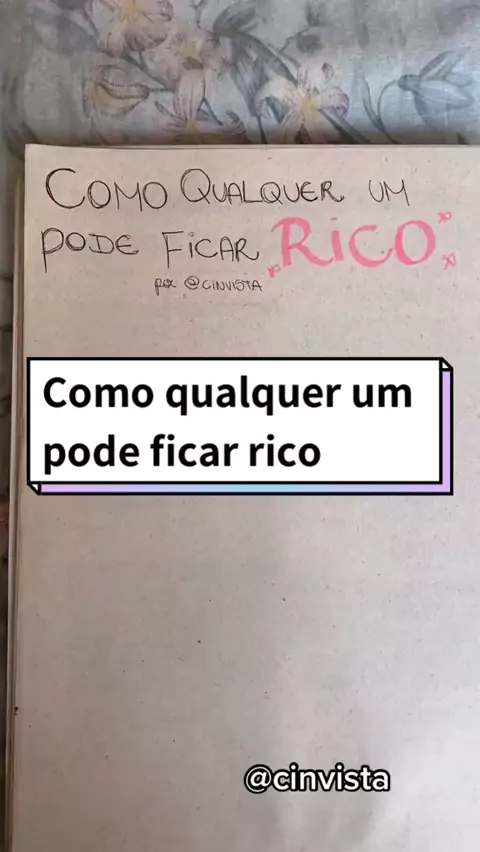 COMO QUALQUER UM
PODE FICAR RICO
por @CINVISTA
Como qualquer um
pode ficar rico
@cinvista